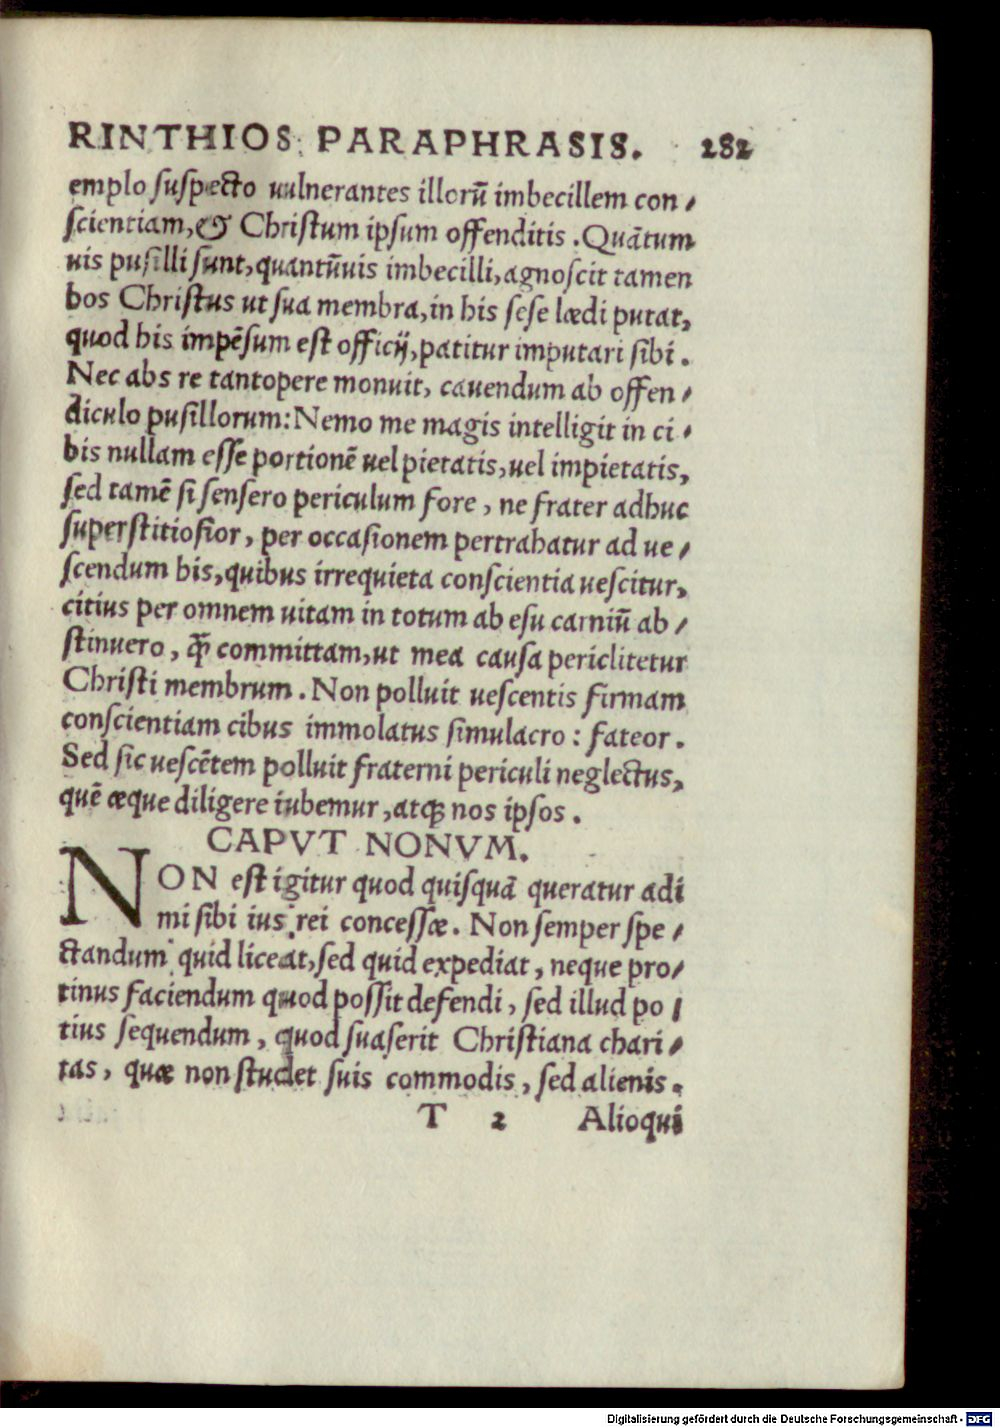 RINTHIOS PARAPHRASIS. 282
emplo suspecto uulnerantes illorū imbecillem con-
scientiam, & Christum ipsum offenditis. Quātum
uis pusilli sunt, quantūuis imbecilli, agnoscit tamen
hos Christus ut sua membra, in his sese lædi putat,
quod his impēsum est officij, patitur imputari sibi.
Nec abs re tantopere monuit, cauendum ab offen-
diculo pusillorum: Nemo me magis intelligit in ci-
bis nullam esse portionē uel pietatis, uel impietatis,
sed tamē si sensero periculum fore, ne frater adhuc
superstitiosior, per occasionem pertrahatur ad ue-
scendum his, quibus irrequieta conscientia uescitur,
citius per omnem uitam in totum ab esu carniū ab-
stinuero, ꝙ̄ committam, ut mea causa periclitetur
Christi membrum. Non polluit uescentis firmam
conscientiam cibus immolatus simulacro: fateor.
Sed sic uescētem polluit fraterni periculi neglectus,
quē æque diligere iubemur, atqꝫ nos ipsos.
CAPVT NONVM.
NON est igitur quod quisquā queratur adi
mi sibi ius rei concessæ. Non semper spe-
ctandum quid liceat, sed quid expediat, neque pro-
tinus faciendum quod possit defendi, sed illud po-
tius sequendum, quod suaserit Christiana chari-
tas, quæ non studet suis commodis, sed alienis.
T 2 Alioqui
Digitalisierung gefördert durch die Deutsche Forschungsgemeinschaft - DFG